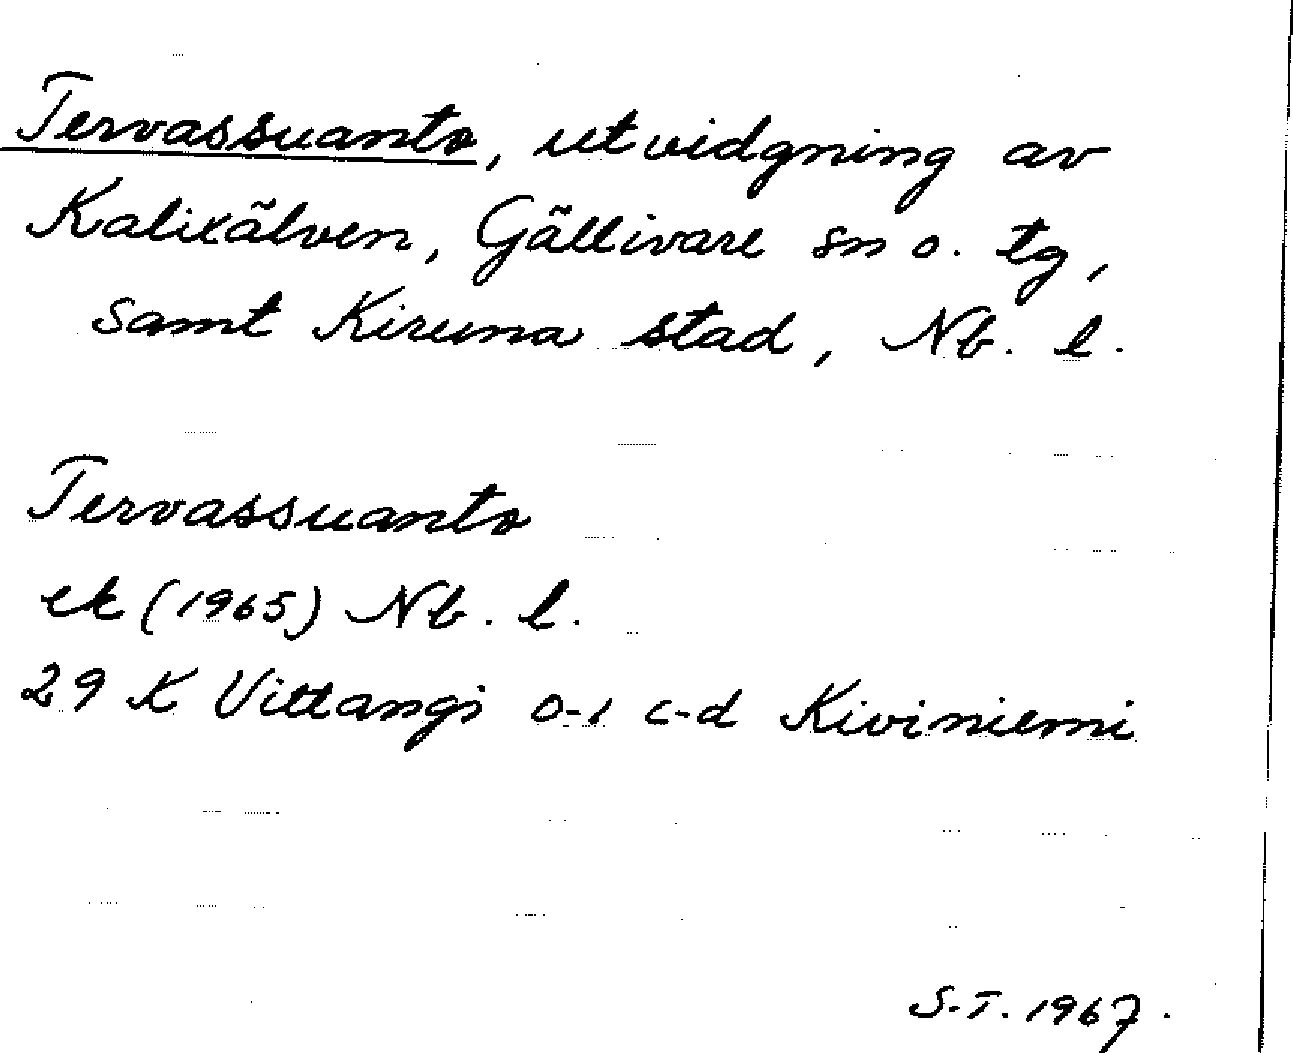 Tervassuanto, utvidgning av
Kalixälven, Gällivare sn o. tg,
samt Kiruna stad, Nb. l.
Tervassuanto
ek (1965) Nb. l.
29 K Vittangi 0-1 c-d Kiviniemi
S.T. 1967.